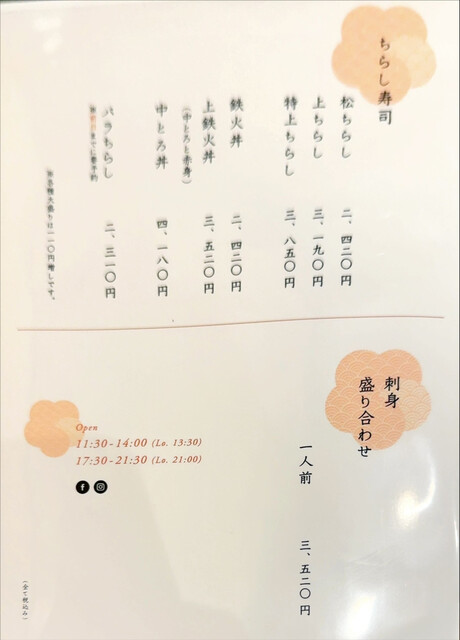 ちらし寿司
松ちらし 二、四二〇円
上ちらし 三、一九〇円
特上ちらし 三、八五〇円
鉄火丼 二、四二〇円
上鉄火丼 三、五二〇円
(中とろと赤身)
中とろ丼 四、一八〇円
バラちらし 二、三一〇円
※前日までに要予約
※各種大盛りは一一〇円増しです。
刺身
盛り合わせ
一人前 三、五二〇円
Open
11:30-14:00 (Lo. 13:30)
17:30-21:30 (Lo. 21:00)
(全て税込み)